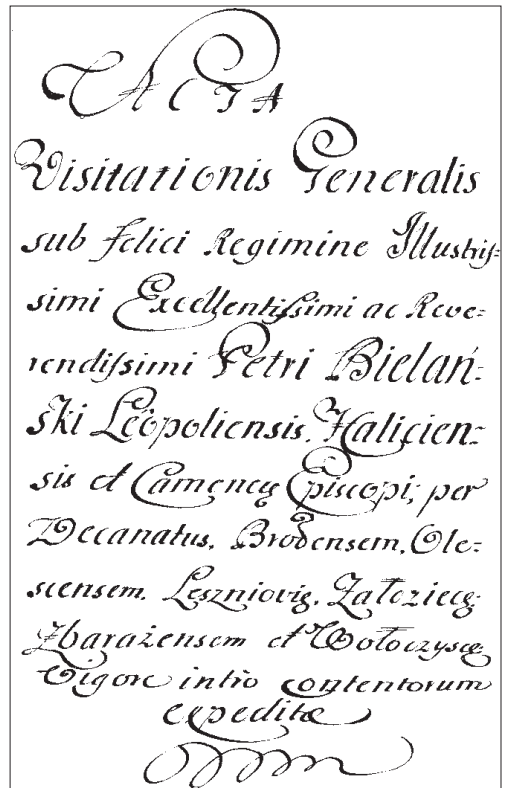 ACTA
Visitationis Generalis
sub felici Regimine Illustris-
simi Excellentissimi ac Reve-
rendissimi Petri Bielań-
ski Leopoliensis, Halicien-
sis et Camenecę Episcopi; per
Decanatus, Brodensem, Ole-
scensem, Leszniovię, Załoziecę
Zbarażensem et Wołoczyscę
Vigore intro contentorum
expeditæ